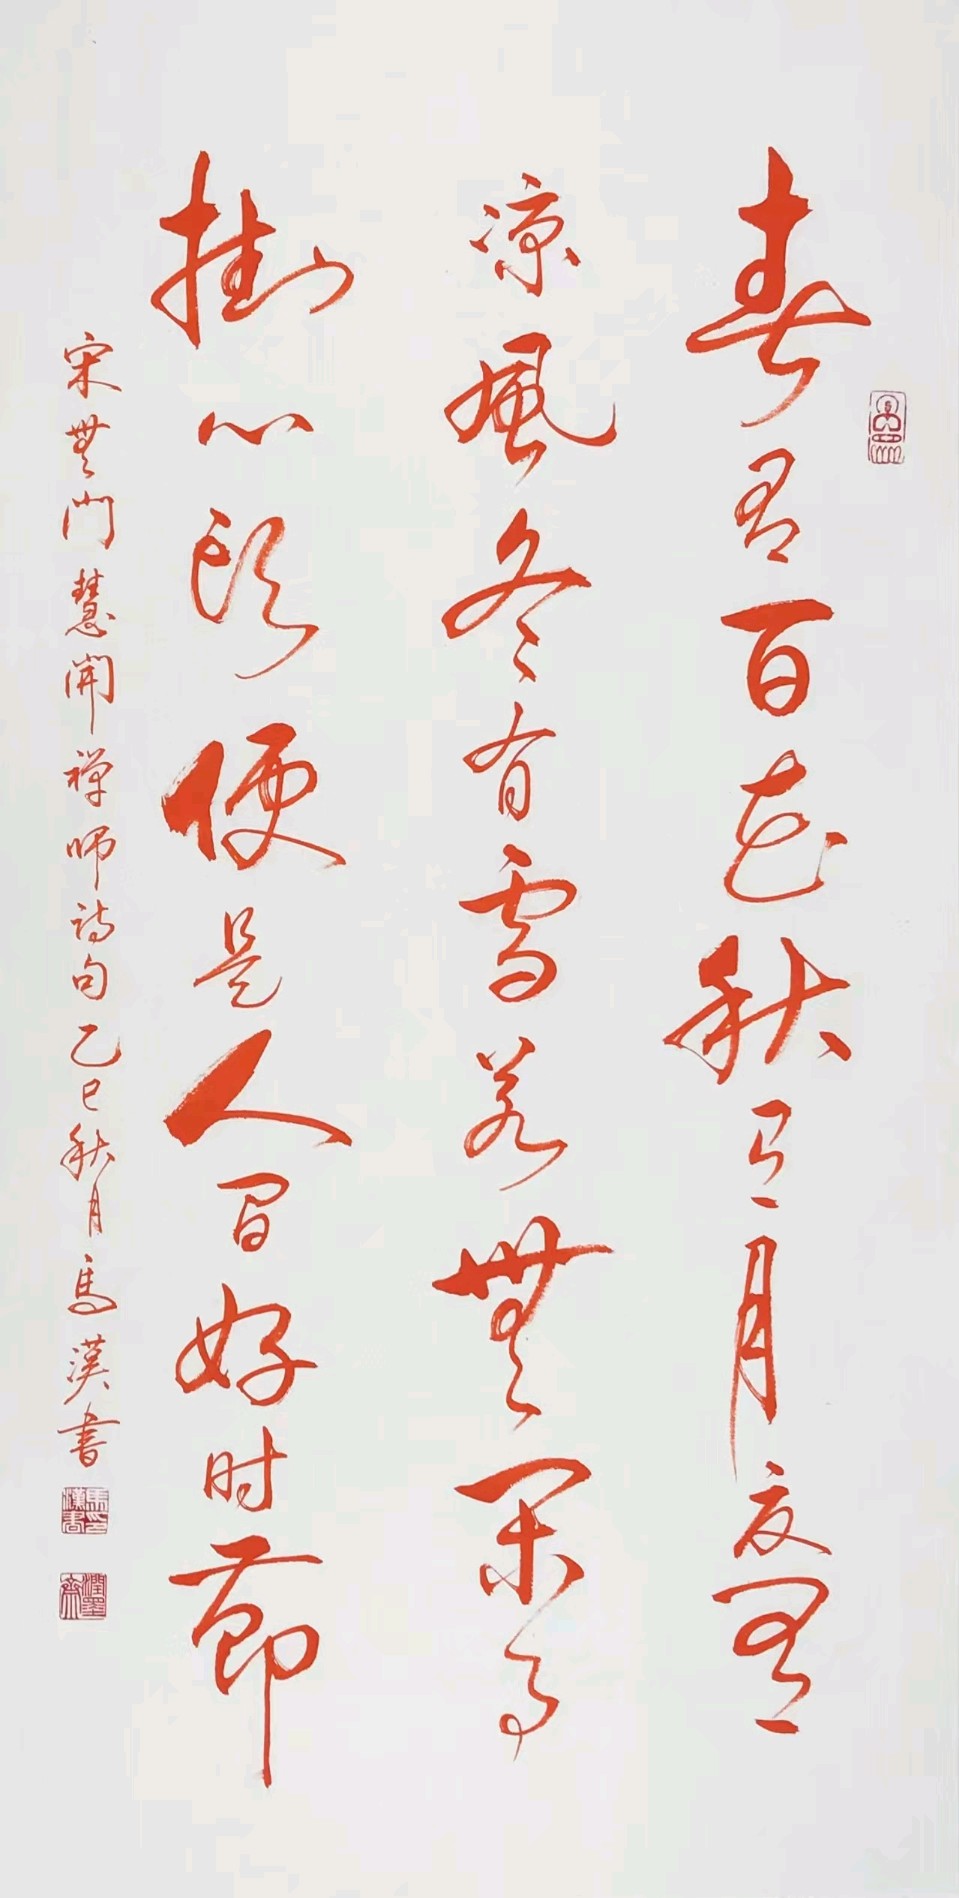 春有百花秋有月夏有
凉風冬有雪若無閑事
掛心頭便是人間好时節
宋無門慧開禅師詩句乙巳秋月馬漢書
潤墨齋